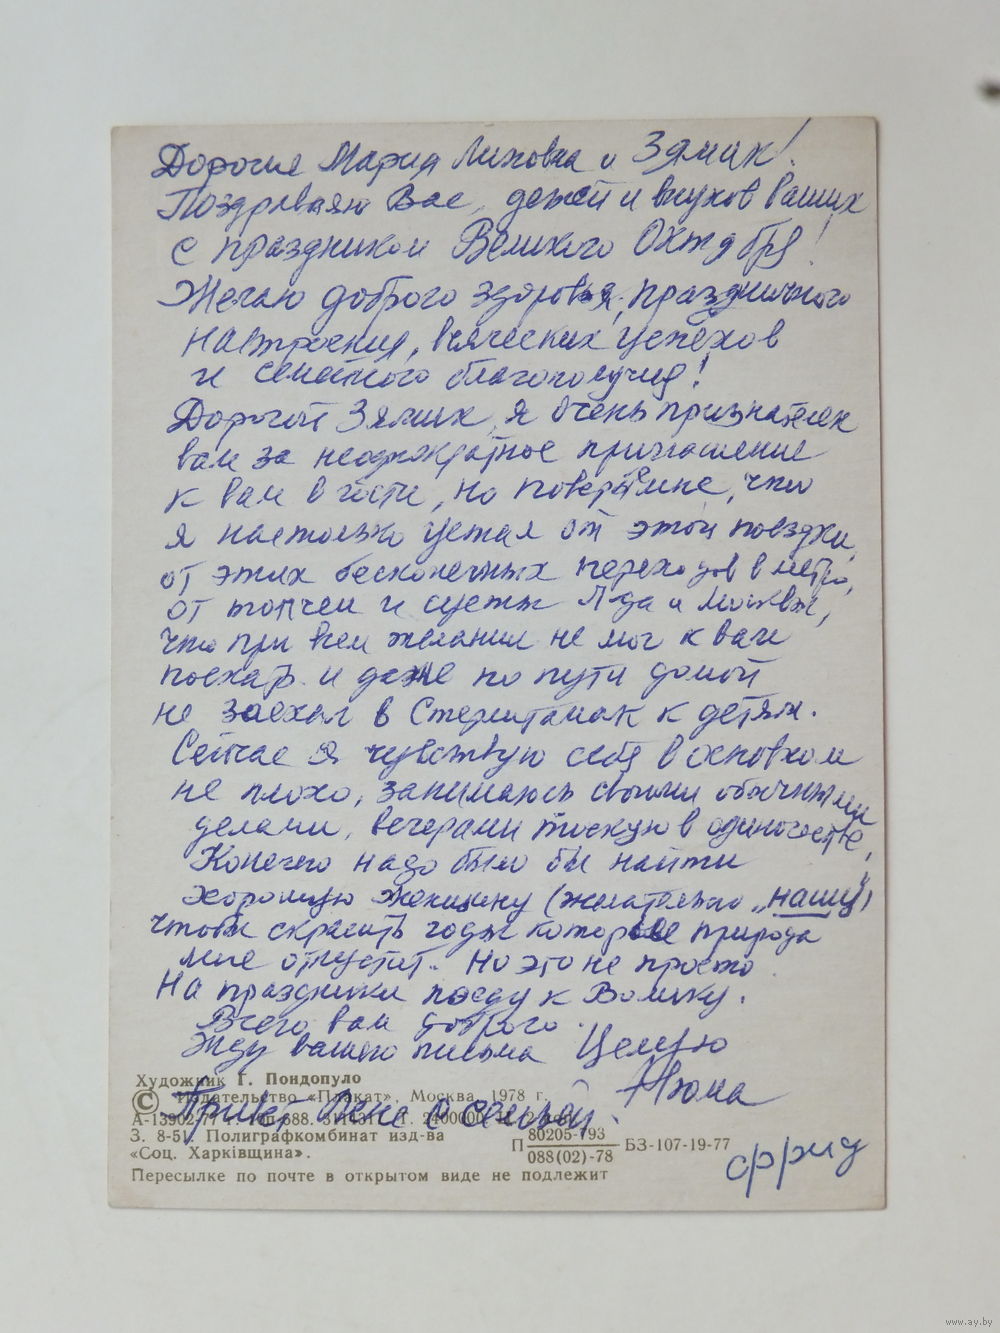 Дорогие Мария Лиховна и Зямик!
Поздравляю Вас, детей и внуков ваших
с праздником Великого Октября!
Желаю доброго здоровья, праздничного
настроения, всяческих успехов
и семейного благополучия!
Дорогой Зямик, я очень признателен
вам за неоднократное приглашение
к вам в гости, но поверьте мне, что
я настолько устал от этой поездки,
от этих бесконечных переходов в метро,
от толчеи и суеты Л-да и Москвы,
что при всем желании не мог к вам
поехать и даже по пути домой
не заехал в Стерлитамак к детям.
Сейчас я чувствую себя в основном
не плохо, занимаюсь своими обычными
делами, вечерами тоскую в одиночестве,
Конечно надо было бы найти
хорошую женщину (желательно „нашу")
чтобы скрасить годы которые природа
мне отпустит. Но это не просто.
На праздники поеду к Вомику.
Всего вам доброго.
Жду вашего письма Целую
Нюма
Привет Лене с семьёй.
Художник Г. Пондопуло
© Издательство «Плакат», Москва, 1978 г.
А-13902-77 г. 2400000
З. 8-51. Полиграфкомбинат изд-ва
«Соц. Харкiвщина».
П 80205-793 / 088(02)-78 БЗ-107-19-77
Пересылке по почте в открытом виде не подлежит
www.ay.by